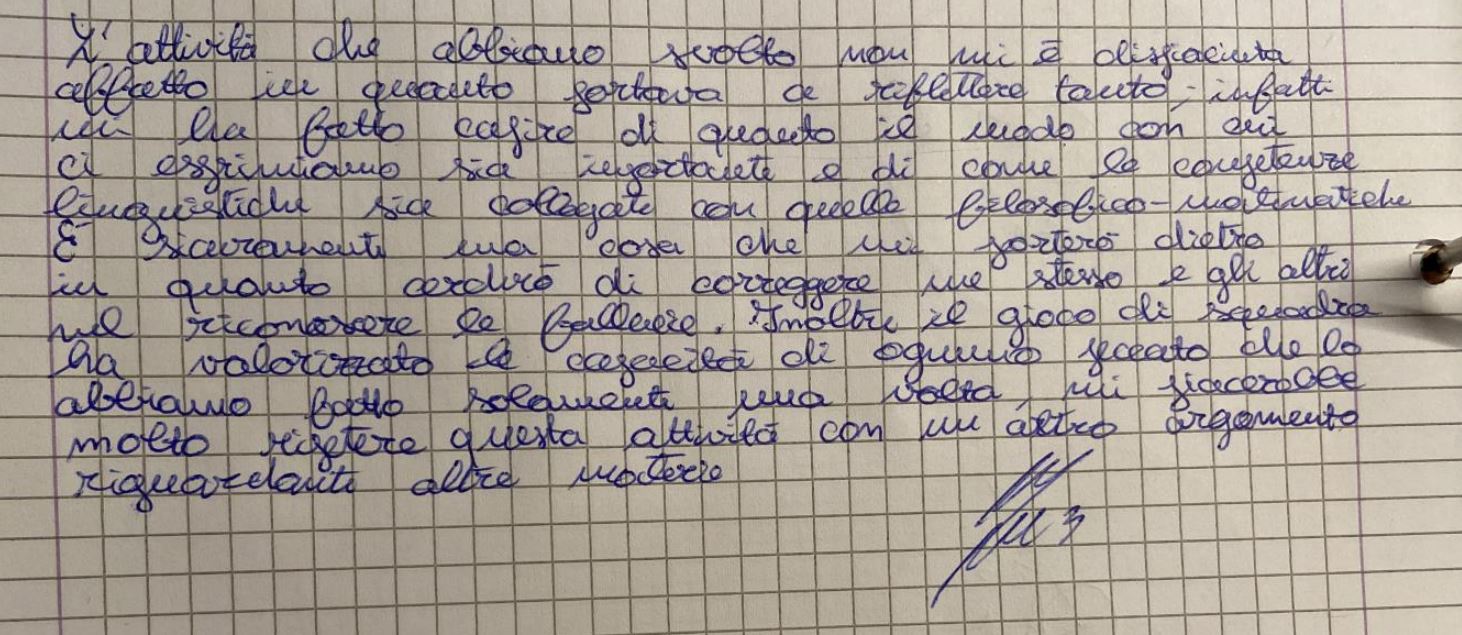 L'attività che abbiamo svolto non mi è dispiaciuta
affatto in quanto portava a riflettere tanto, infatti
mi ha fatto capire di quanto il modo con cui
ci esprimiamo sia importante e di come le competenze
linguistiche sia collegate con quelle filosofico-matematiche
È sicuramente una cosa che mi porterò dietro
in quanto cercherò di correggere me stesso e gli altri
nel riconoscere le fallacie. Inoltre il gioco di squadra
ha valorizzato le capacità di ognuno peccato che lo
abbiamo fatto solamente una volta, mi piacerebbe
molto ripetere questa attività con un altro argomento
riguardante altre materie